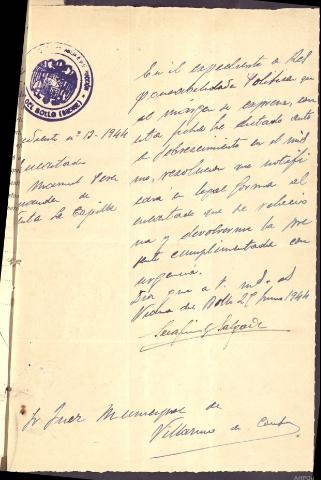 DEL BOLLO (ORENSE)
Expediente nº 13-1944
Encartado
Manuel Pérez
En el expediente de Res
ponsabilidades Políticas que
al márgen se expresa, con
esta fecha he dictado auto
de sobreseimiento en el mis
mo, resolución que notifi
cará en legal forma al
encartado que se relacio
na y devolverme la pre
sente cumplimentada con
urgencia.
Dios que a V. m. a.
Viana del Bollo 29 Junio 1944
Serafín G Salgado
Sr Juez Municipal de
Villarino de Conso